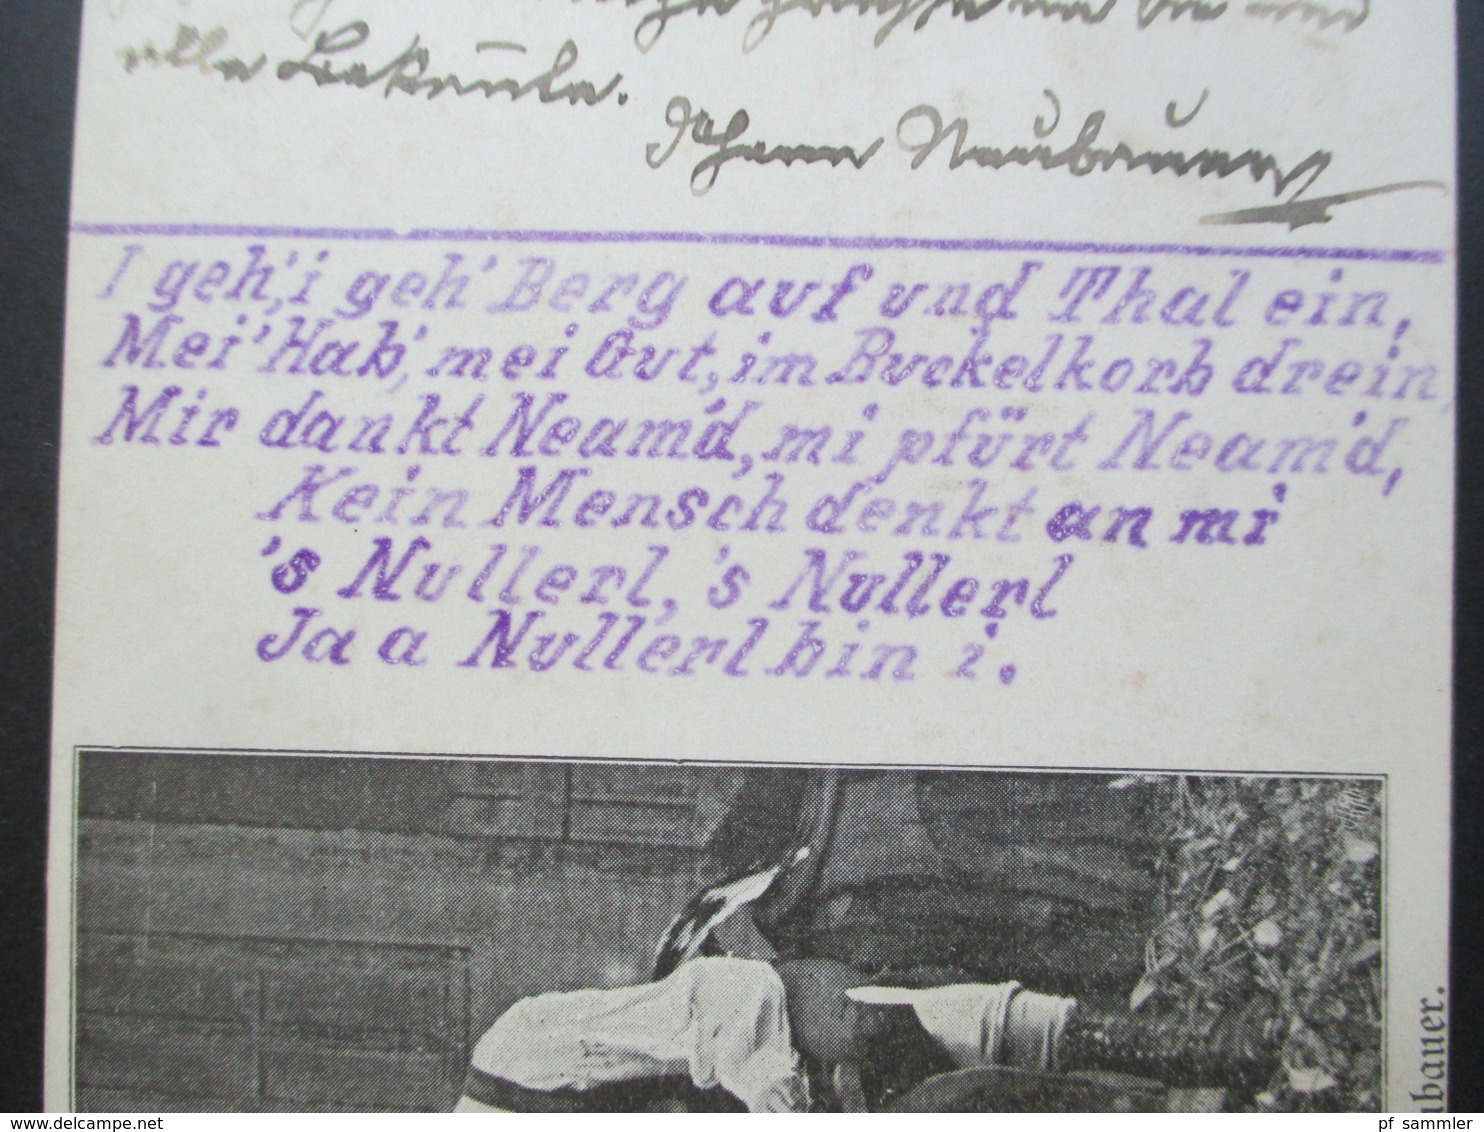 alle Bekannte.
Johann Neubauer
I geh', i geh' Berg auf und Thal ein,
Mei' Hab', mei Gut, im Buckelkorb drein,
Mir dankt Neam'd, mi pfürt Neam'd,
Kein Mensch denkt an mi
's Nullerl, 's Nullerl
Ja a Nullerl bin i.
bauer.
pf_sammler